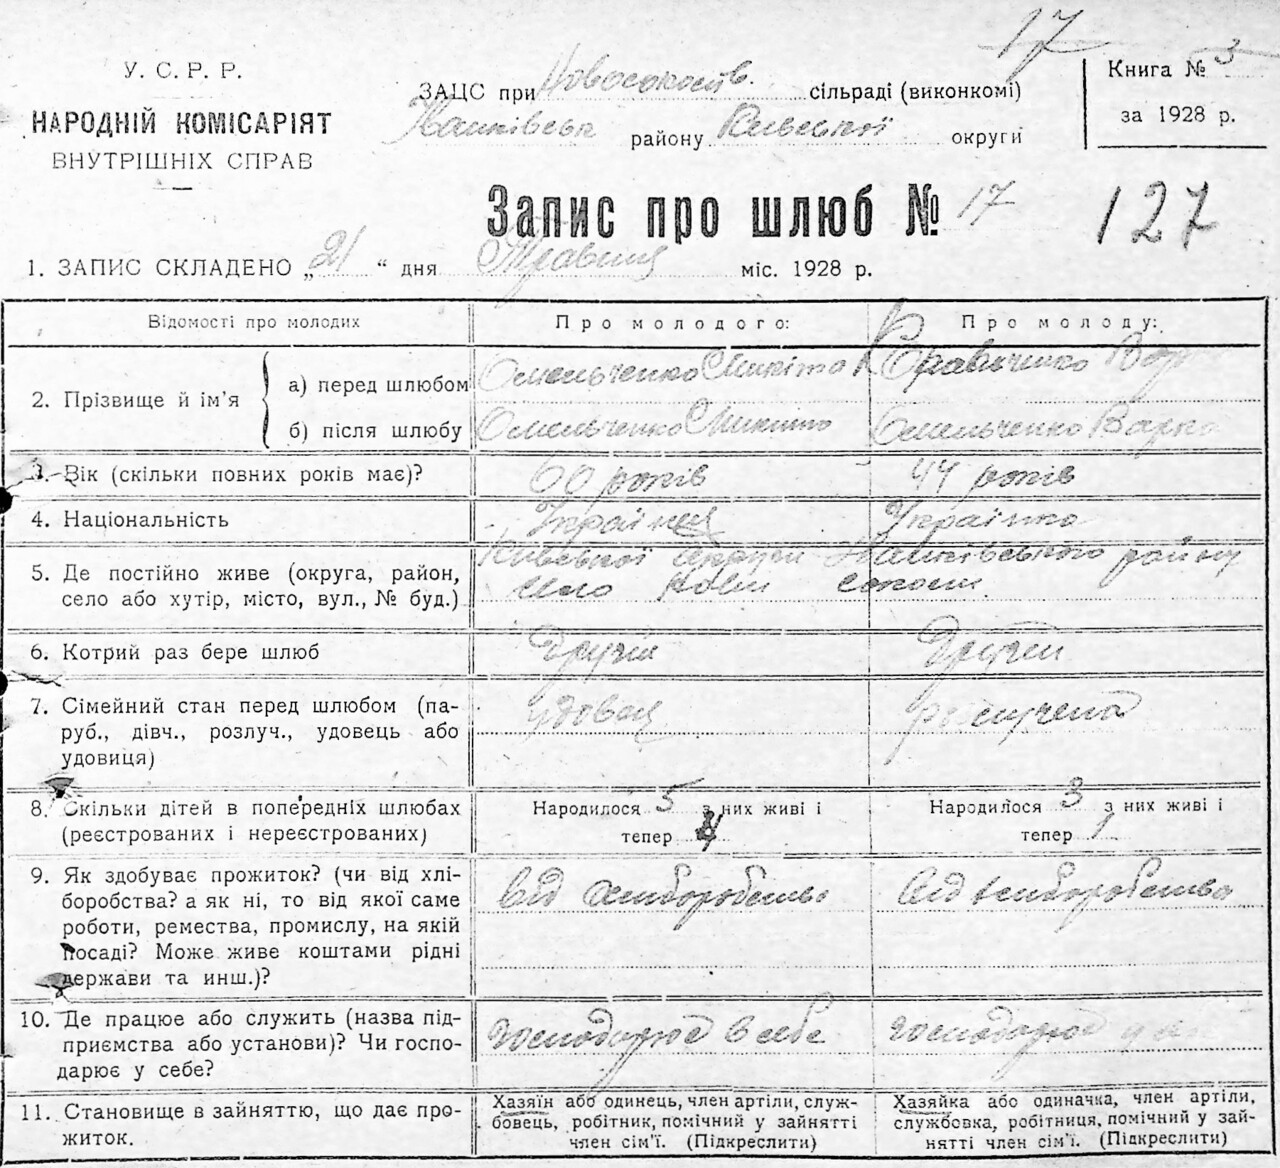 17
У. С. Р. Р.
НАРОДНІЙ КОМІСАРІЯТ
ВНУТРІШНІХ СПРАВ
ЗАЦС при Новосокоств. сільраді (виконкомі)
району Київської округи
Книга № 3
за 1928 р.
Запис про шлюб № 17
127
1. ЗАПИС СКЛАДЕНО „ 21 “ дня Травня міс. 1928 р.
Відомості про молодих
Про молодого:
Про молоду:
2. Прізвище й ім'я
а) перед шлюбом
Омельченко Микита
б) після шлюбу
Омельченко Микита
Омельченко Варка
3. Вік (скільки повних років має)?
60 років
44 років
4. Національність
Українец
Українка
5. Де постійно живе (округа, район,
село або хутір, місто, вул., № буд.)
Київської округи Іванківського району
село Нови Соколи
6. Котрий раз бере шлюб
Другий
Другий
7. Сімейний стан перед шлюбом (па-
руб., дівч., розлуч., удовець або
удовиця)
удовец
розлучена
8. Скільки дітей в попередніх шлюбах
(реєстрованих і нереєстрованих)
Народилося 5 з них живі і
тепер 4
Народилося 3 з них живі і
тепер 1
9. Як здобуває прожиток? (чи від хлі-
боробства? а як ні, то від якої саме
роботи, ремества, промислу, на якій
посаді? Може живе коштами рідні
держави та инш.)?
від хліборобства
від хліборобства
10. Де працює або служить (назва під-
приємства або установи)? Чи госпо-
дарює у себе?
господарює в себе
господарює у
11. Становище в зайняттю, що дає про-
житок.
Хазяїн або одинець, член артіли, служ-
бовець, робітник, помічний у зайнятті
член сім'ї. (Підкреслити)
Хазяйка або одиначка, член артіли,
службовка, робітниця, помічний у зай-
нятті член сім'ї. (Підкреслити)